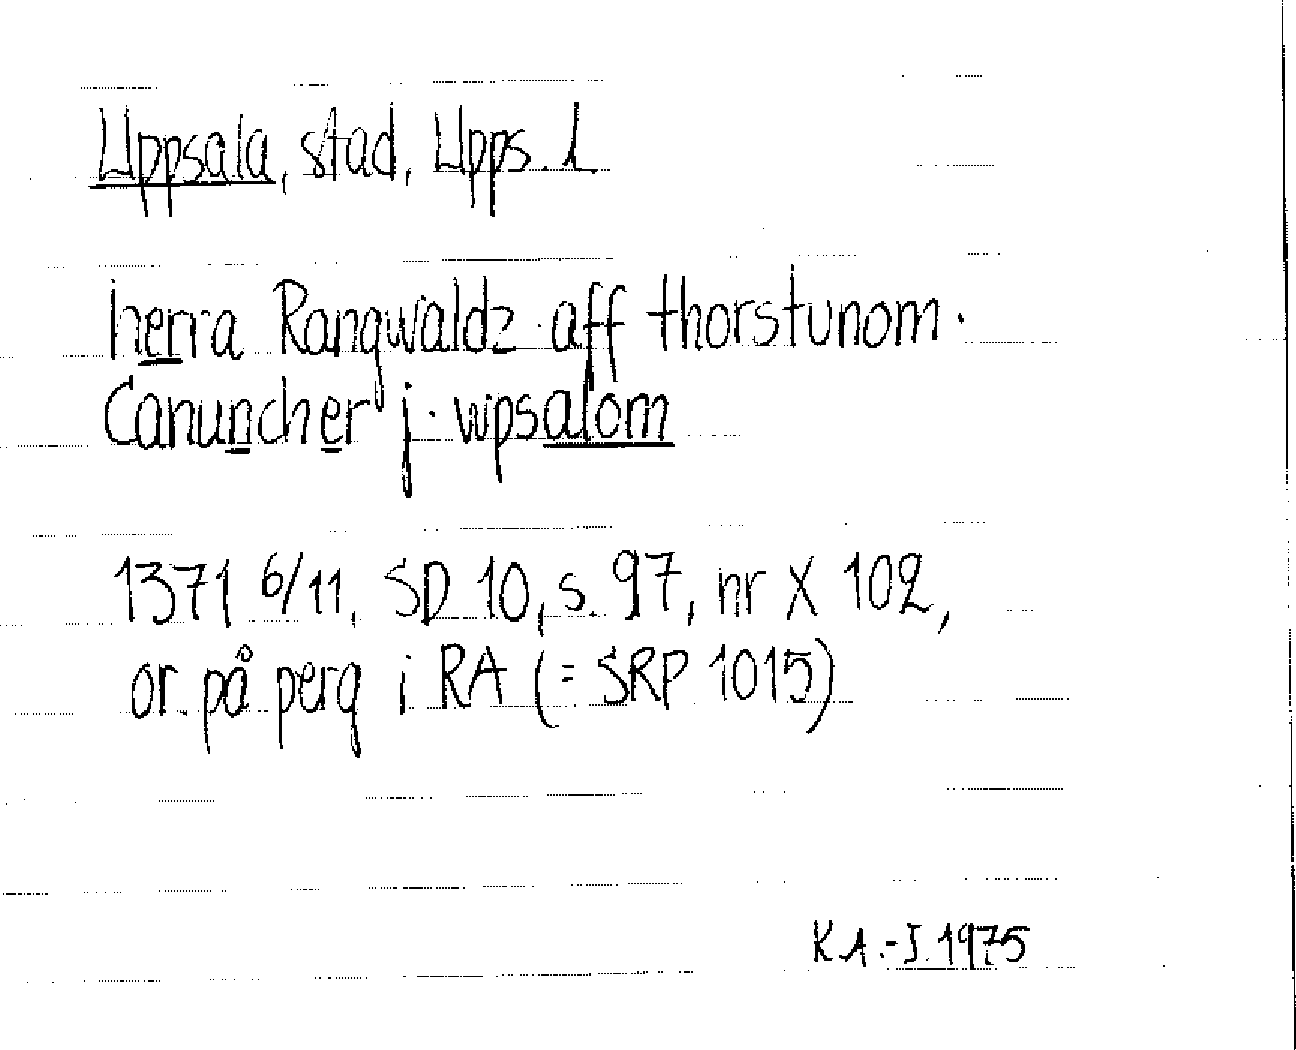 Uppsala, stad, Upps. l
herra Rangwaldz · aff thorstunom ·
Canuncher j · wpsalom
1371 6/11, SD 10, s. 97, nr X 102,
or. på perg i RA (= SRP 1015)
K A.-I. 1975